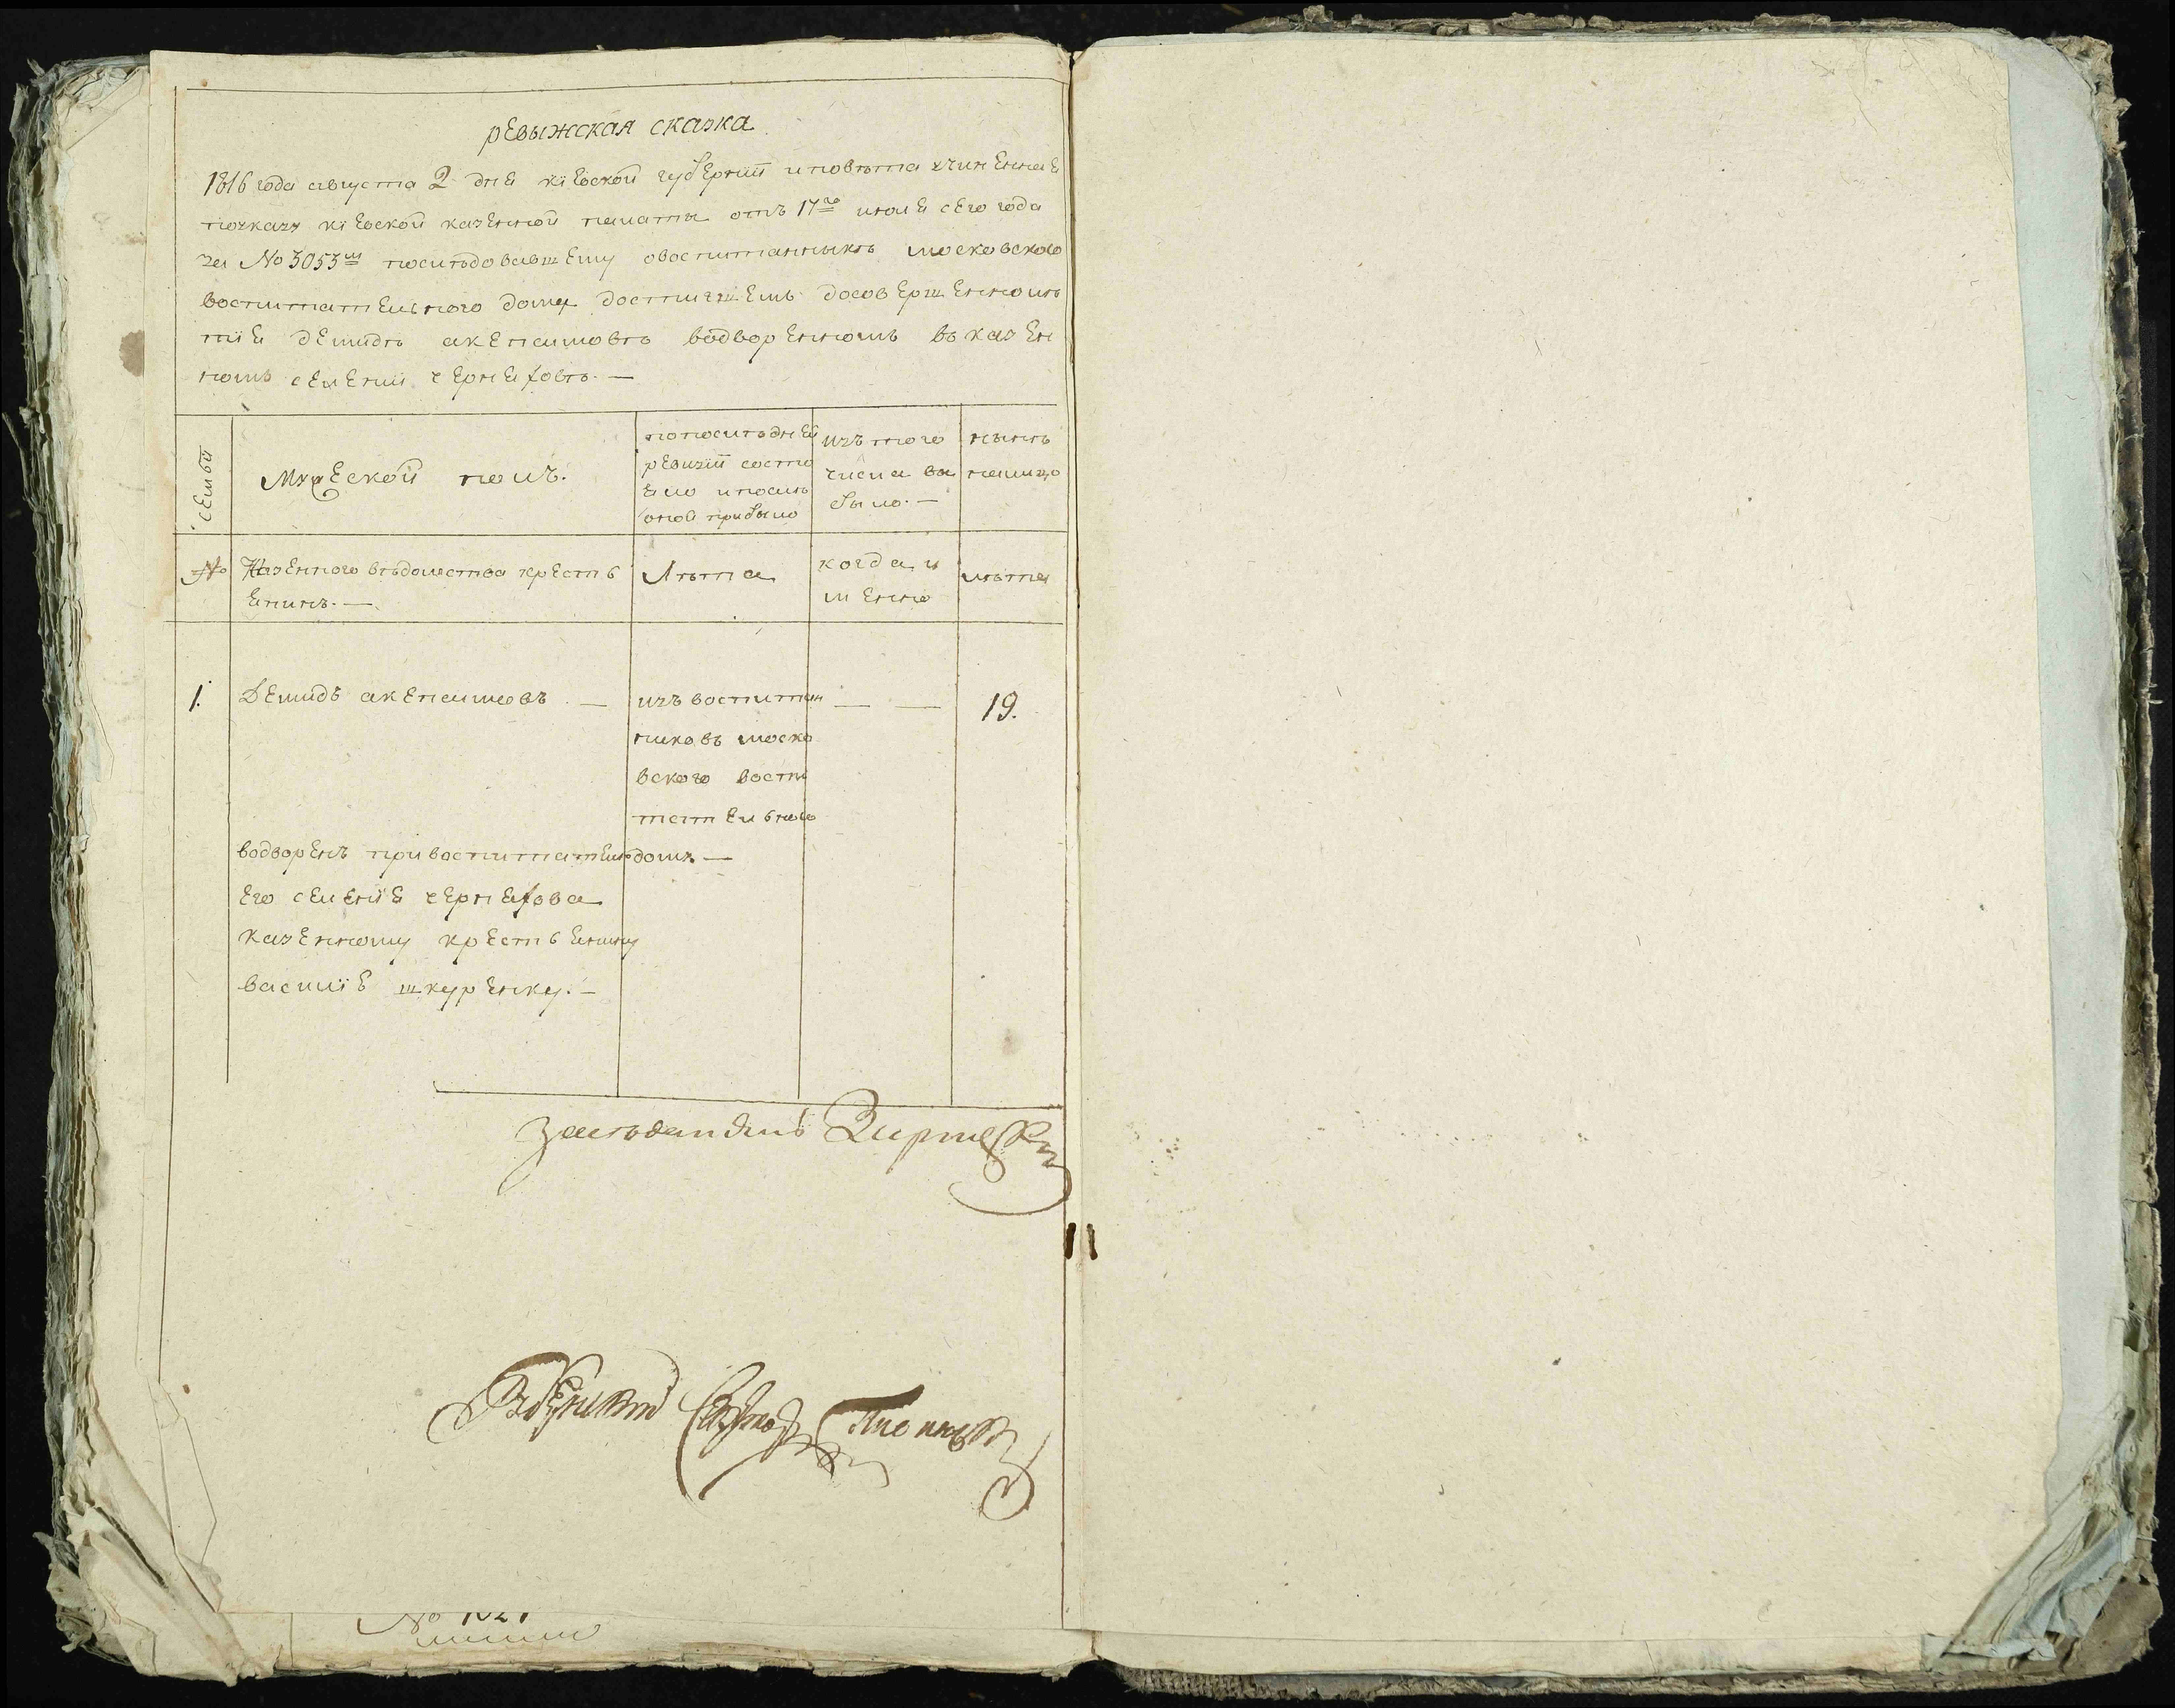 ревыжская сказка
1816 года августа 2 дня кіевской губерніи и повѣта учиненная
по указу кіевской казенной палаты отъ 17го июля сего года
за No 3053м последовавшему о воспитанныкѣ московского
воспитательного дома достигшемъ до совершеннолѣ
тія демидѣ акепсимовѣ водворенномъ въ казен
номъ селеніи черняховѣ. —
семьи
Мужеской полъ.
по последней
ревизіи состо
яло и послѣ
оной прибыло
изъ того
числа вы
было. —
нынѣ
на лицо
No
Казенного вѣдомства кресть
янинъ. —
Лѣта
когда и
менно
лѣта
1.
Демидъ акепсимовъ. —
изъ воспитан
никовъ моско
вского воспи
тательного
дома —
— —
19.
водворенъ при воспитателѣ
его селенія черняхова
казенному крестьянину
василіѣ шкуренку. —
Засѣдатель
No 1021